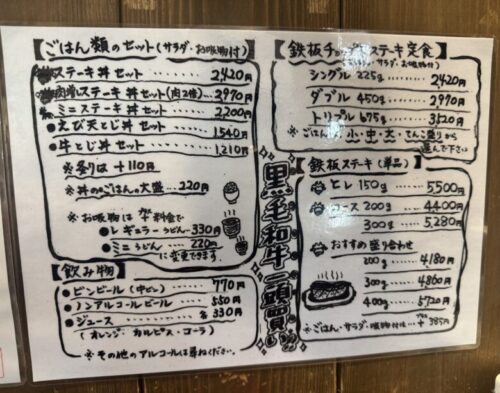 【ごはん類のセット(サラダ・お吸物付)】
ステーキ丼セット……… 2,420円
肉増しステーキ丼セット(肉2倍)… 2,970円
ミニステーキ丼セット……… 2,200円
えび天とじ丼セット……… 1,540円
牛とじ丼セット……… 1,210円
※炙りは +110円
※丼のごはんの大盛…220円
※お吸物は プラス料金で
・レギュラーうどん…330円
・ミニうどん……220円
に変更できます。
【飲み物】
ビンビール(中ビン)…… 770円
ノンアルコールビール…… 550円
ジュース…… 各330円
(オレンジ・カルピス・コーラ)
※その他のアルコールは尋ねください。
黒毛和牛一頭買い
【鉄板チョップステーキ定食】
(サラダ・お吸物付)
シングル 225g…… 2,420円
ダブル 450g…… 2,970円
トリプル 675g…… 3,520円
※ごはん 小・中・大・てんこ盛りから
選んで下さい
【鉄板ステーキ(単品)】
ヒレ 150g…… 5,500円
ロース 200g…… 4,400円
300g…… 5,280円
おすすめ盛り合わせ
200g…… 4,180円
300g…… 4,860円
400g…… 5,720円
※ごはん・サラダ・吸物付は… プラス +385円